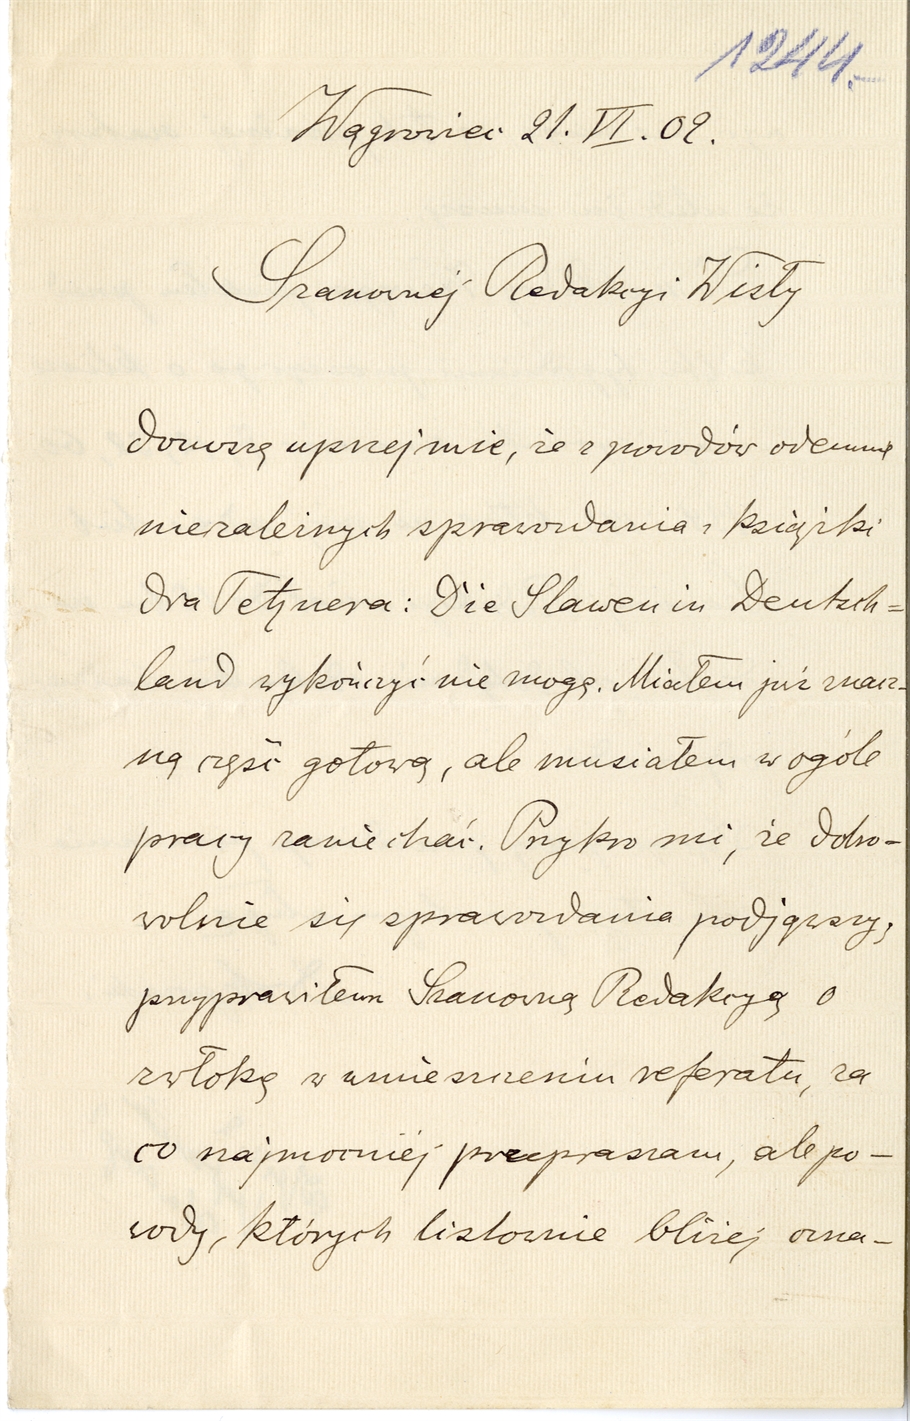 1244.
Wągrowiec 21. VI. 02.
Szanownej Redakcyi Wisły
donoszę uprzejmie, że z powodów odemnie
niezależnych sprawozdania z książki
dra Tetznera: Die Slawen in Deutsch=
land wykończyć nie mogę. Miałem już znacz-
ną część gotową, ale musiałem w ogóle
pracy zaniechać. Przykro mi, że dobro-
wolnie się sprawozdania podjąwszy,
przyprawiłem Szanowną Redakcyą o
zwłokę w umieszczeniu referatu, za
co najmocniej przepraszam, ale po-
wody, których listownie bliżej ozna-